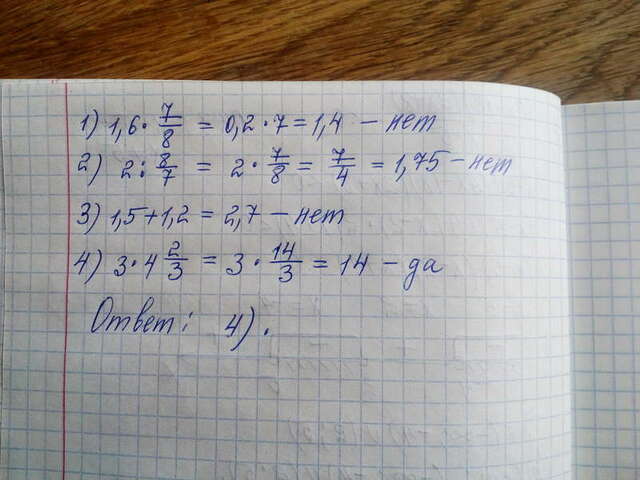 1) 1,6 · 7/8 = 0,2 · 7 = 1,4 – нет
2) 2 : 8/7 = 2 · 7/8 = 7/4 = 1,75 – нет
3) 1,5 + 1,2 = 2,7 – нет
4) 3 · 4 2/3 = 3 · 14/3 = 14 – да
Ответ: 4).